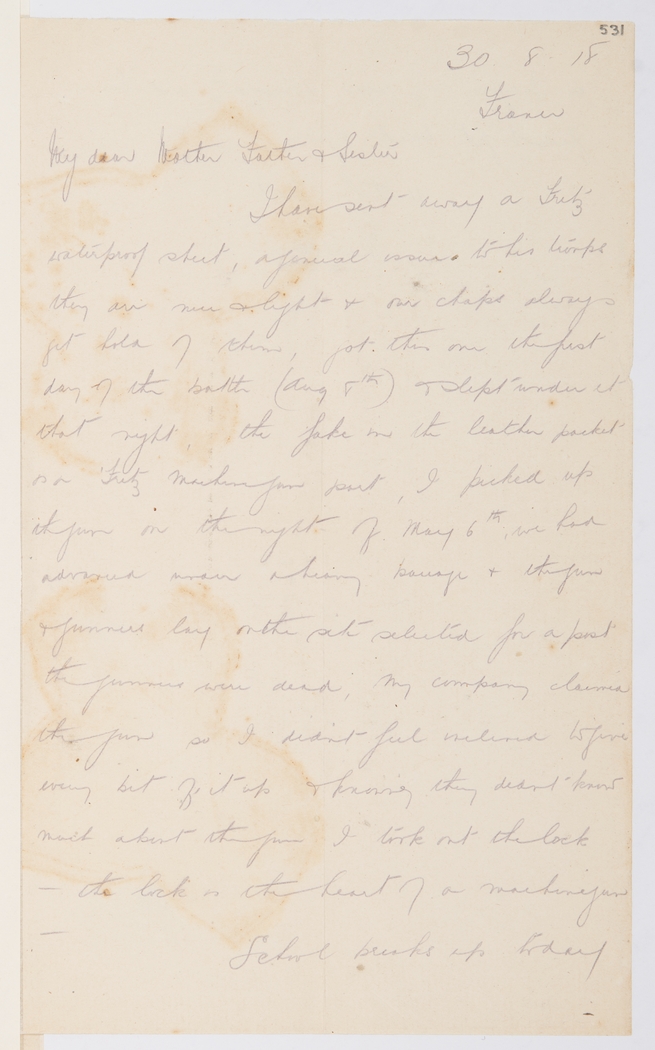 531
30 8 18
France
My dear Mother Father & Sister
I have sent away a Fritz
waterproof sheet, a general issue to his troops
they are nice & light & our chaps always
get hold of them, got this one the first
day of the battle (Aug 8th) & slept under it
that night, the in the leather packet
is a Fritz machine gun part, I picked up
the gun on the night of May 6th, we had
advanced under a heavy barrage & the gun
& gunners lay on the site selected for a post
the gunners were dead, My company claimed
the gun so I didn't feel inclined to give
every bit of it up & knowing they didn't know
much about the gun I took out the lock
— the lock is the heart of a machine gun
—
School breaks up today